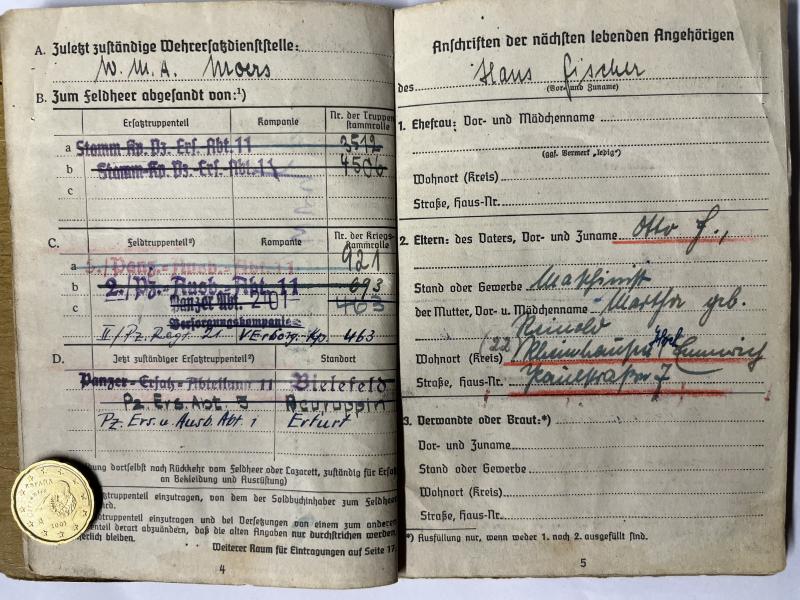 A. Zuletzt zuständige Wehrersatzdienststelle:
W. M. A. Moers
B. Zum Feldheer abgesandt von:¹)
Ersatztruppenteil Kompanie Nr. der Truppenstammrolle
a Stamm-Kp. Pz. Ers. Abt. 11 3512
b Stamm-Kp. Pz.-Ers.-Abt. 11 4506
c
C. Feldtruppenteil²) Kompanie Nr. der Kriegsstammrolle
a 3./Panz.-Ausb.-Abt. 11 921
b 2./Pz.-Ausb.-Abt. 11 693
c Panzer Abt. 2101 463
Versorgungskompanie
II/Pz. Regt. 21 Kp. 463
D. Jetzt zuständiger Ersatztruppenteil²) Standort
Panzer-Ersatz-Abteilung 11 Bielefeld
Pz. Ers. Abt. 5 Neuruppin
Pz. Ers. u. Ausb. Abt. 1 Erfurt
dortselbst nach Rückkehr vom Feldheer oder Lazarett, zuständig für Ersatz
an Bekleidung und Ausrüstung)
einzutragen, von dem der Soldbuchinhaber zum Feldheer
einzutragen und bei Versetzungen von einem zum anderen
derart abzuändern, daß die alten Angaben nur durchstrichen werden,
bleiben.
Weiterer Raum für Eintragungen auf Seite 17.
4
ESPAÑA
2001
Anschriften der nächsten lebenden Angehörigen
des Hans Fischer
(Vor- und Zuname)
1. Ehefrau: Vor- und Mädchenname
(ggf. Vermerk „ledig")
Wohnort (Kreis)
Straße, Haus-Nr.
2. Eltern: des Vaters, Vor- und Zuname Otto F.,
Stand oder Gewerbe Maschinist
der Mutter, Vor- u. Mädchenname Martha geb.
Wohnort (Kreis) (22) Rheinhausen
Straße, Haus-Nr. 7
3. Verwandte oder Braut:*)
Vor- und Zuname
Stand oder Gewerbe
Wohnort (Kreis)
Straße, Haus-Nr.
*) Ausfüllung nur, wenn weder 1. noch 2. ausgefüllt sind.
5